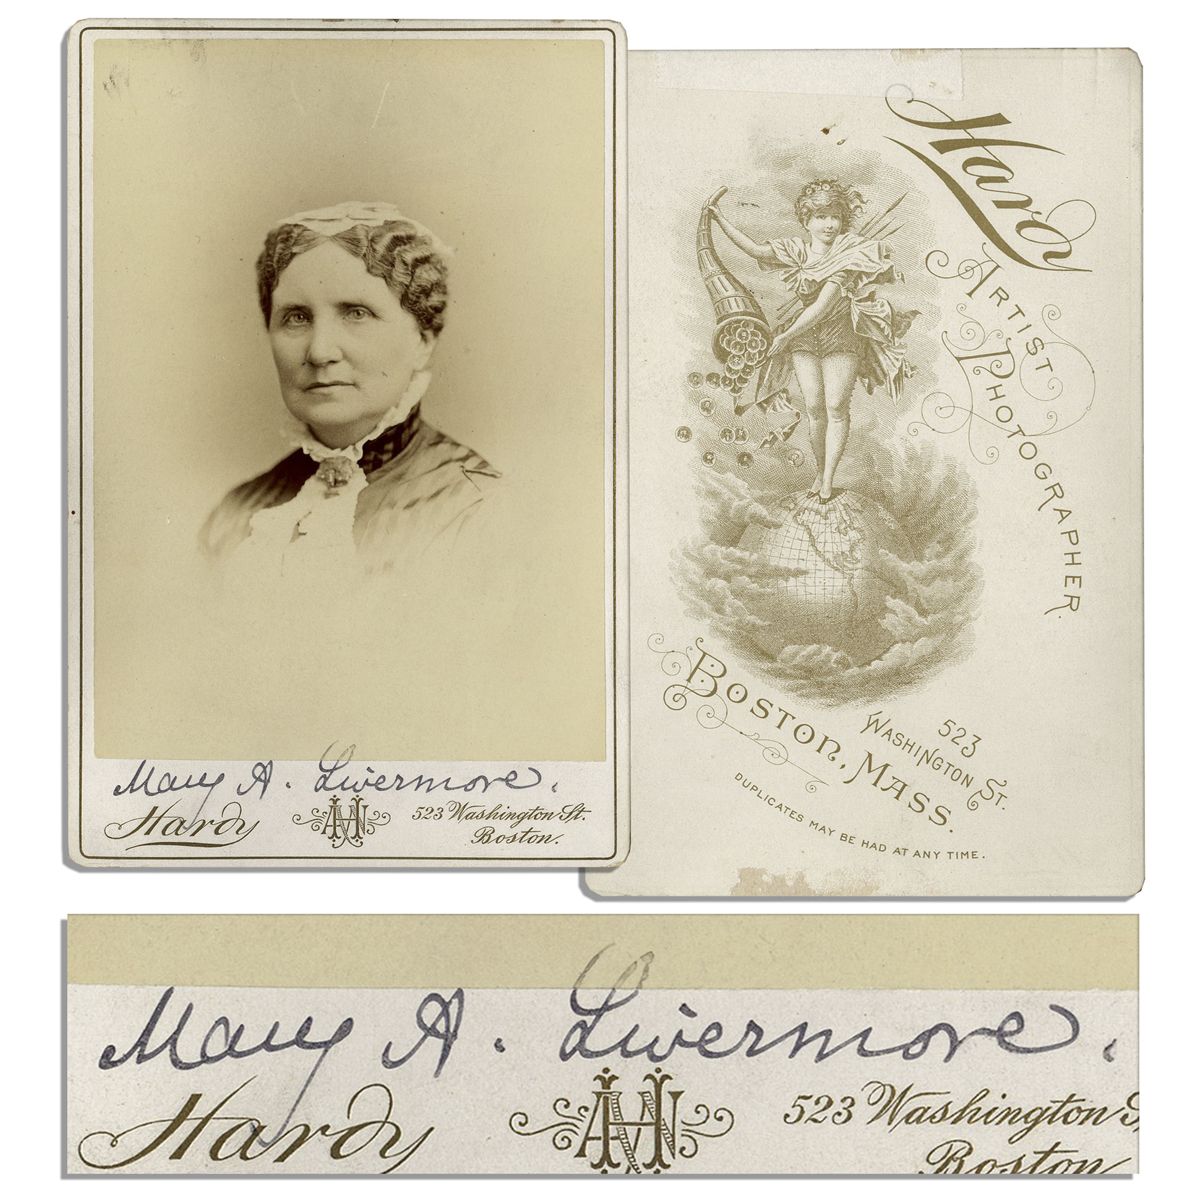 Mary A. Livermore.
Hardy
AHN
523 Washington St.
Boston.
Hardy
Artist
Photographer.
Boston, Mass.
523
Washington St.
Duplicates may be had at any time.
Mary A. Livermore.
Hardy
AHN
523 Washington S
Boston